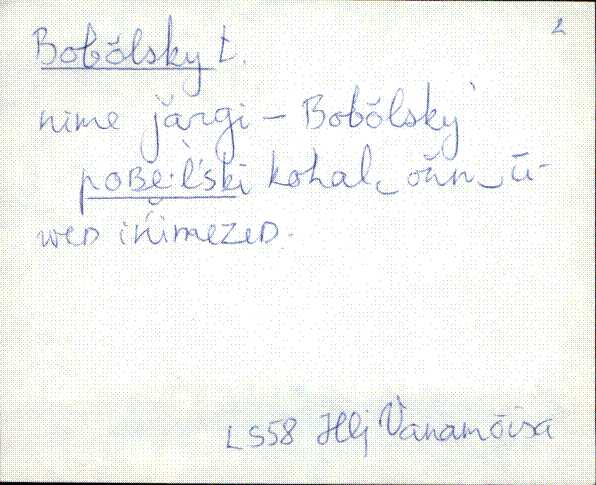 2
Bobõlsky t.
nime järgi – Bobõlsky
poʙe·ĺśki kohal‿oĺn‿ū-
weᴅ inimezeᴅ.
LS58 Hlj Vanamõisa